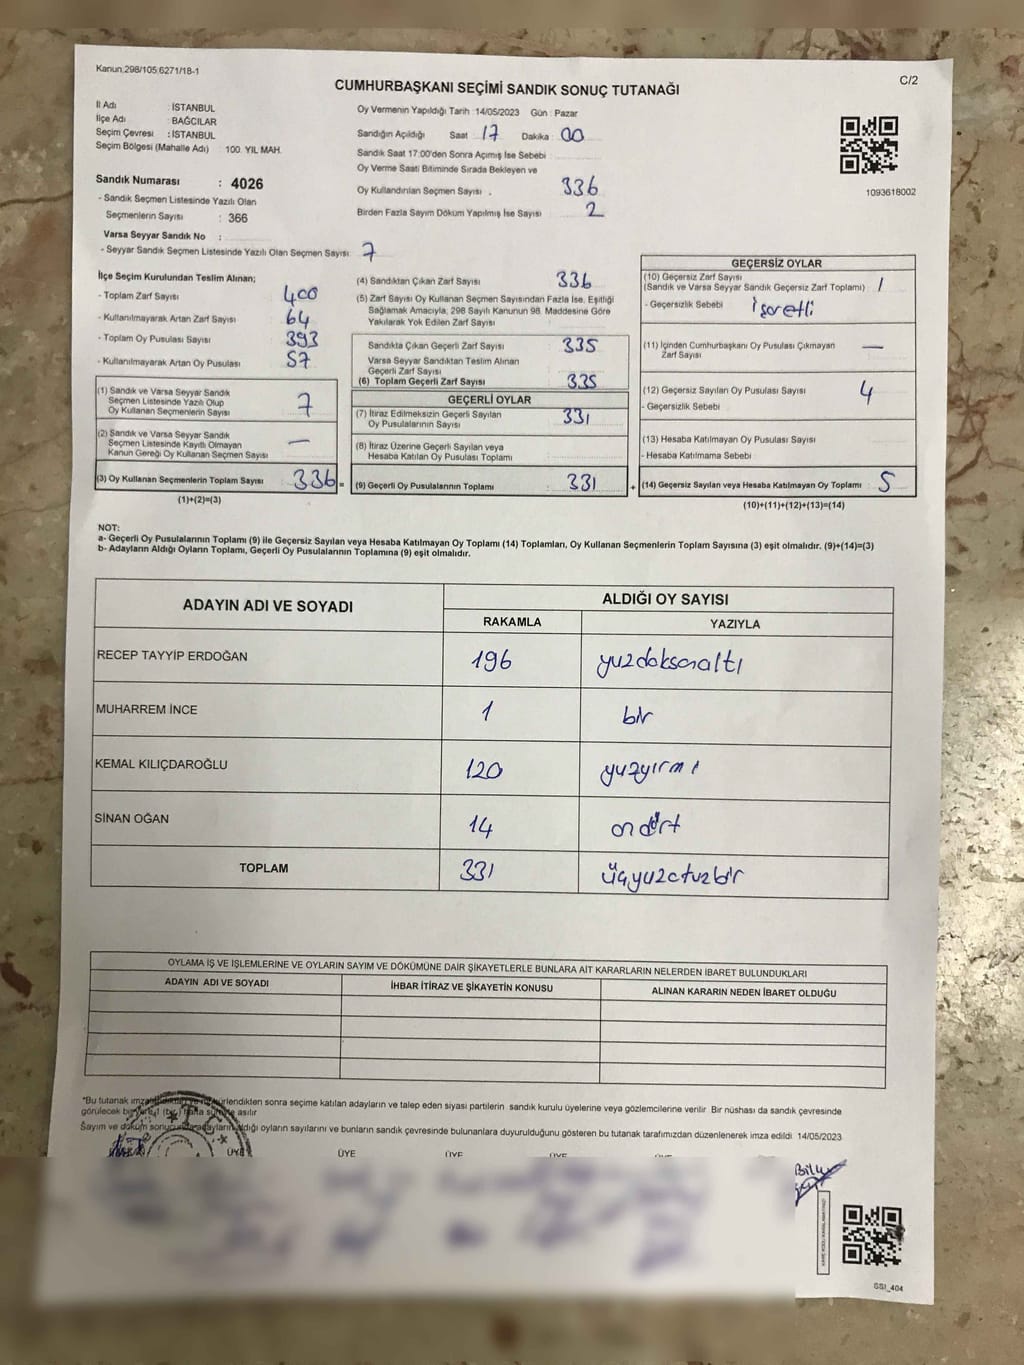 Kanun:298/105;6271/18-1
C/2
CUMHURBAŞKANI SEÇİMİ SANDIK SONUÇ TUTANAĞI
İl Adı : İSTANBUL
İlçe Adı : BAĞCILAR
Seçim Çevresi : İSTANBUL
Seçim Bölgesi (Mahalle Adı) : 100. YIL MAH.
Sandık Numarası : 4026
- Sandık Seçmen Listesinde Yazılı Olan
Seçmenlerin Sayısı : 366
Varsa Seyyar Sandık No :
- Seyyar Sandık Seçmen Listesinde Yazılı Olan Seçmen Sayısı: 7
Oy Vermenin Yapıldığı Tarih :14/05/2023 Gün : Pazar
Sandığın Açıldığı Saat : 17 Dakika : 00
Sandık Saat 17:00'den Sonra Açımış İse Sebebi :
Oy Verme Saati Bitiminde Sırada Bekleyen ve
Oy Kullandırılan Seçmen Sayısı . 336
Birden Fazla Sayım Döküm Yapılmış İse Sayısı : 2
1093618002
İlçe Seçim Kurulundan Teslim Alınan;
- Toplam Zarf Sayısı : 400
- Kullanılmayarak Artan Zarf Sayısı : 64
- Toplam Oy Pusulası Sayısı : 393
- Kullanılmayarak Artan Oy Pusulası : 57
(1) Sandık ve Varsa Seyyar Sandık
Seçmen Listesinde Yazılı Olup
Oy Kullanan Seçmenlerin Sayısı : 7
(2) Sandık ve Varsa Seyyar Sandık
Seçmen Listesinde Kayıtlı Olmayan
Kanun Gereği Oy Kullanan Seçmen Sayısı : —
(3) Oy Kullanan Seçmenlerin Toplam Sayısı : 336
(1)+(2)=(3)
(4) Sandıktan Çıkan Zarf Sayısı : 336
(5) Zarf Sayısı Oy Kullanan Seçmen Sayısından Fazla İse, Eşitliği
Sağlamak Amacıyla, 298 Sayılı Kanunun 98. Maddesine Göre
Yakılarak Yok Edilen Zarf Sayısı :
Sandıkta Çıkan Geçerli Zarf Sayısı : 335
Varsa Seyyar Sandıktan Teslim Alınan
Geçerli Zarf Sayısı :
(6) Toplam Geçerli Zarf Sayısı : 335
GEÇERLİ OYLAR
(7) İtiraz Edilmeksizin Geçerli Sayılan
Oy Pusulalarının Sayısı : 331
(8) İtiraz Üzerine Geçerli Sayılan veya
Hesaba Katılan Oy Pusulası Toplamı :
(9) Geçerli Oy Pusulalarının Toplamı : 331
GEÇERSİZ OYLAR
(10) Geçersiz Zarf Sayısı
(Sandık ve Varsa Seyyar Sandık Geçersiz Zarf Toplamı) : 1
- Geçersizlik Sebebi : İşaretli
(11) İçinden Cumhurbaşkanı Oy Pusulası Çıkmayan
Zarf Sayısı : —
(12) Geçersiz Sayılan Oy Pusulası Sayısı : 4
- Geçersizlik Sebebi :
(13) Hesaba Katılmayan Oy Pusulası Sayısı :
- Hesaba Katılmama Sebebi :
(14) Geçersiz Sayılan veya Hesaba Katılmayan Oy Toplamı : 5
(10)+(11)+(12)+(13)=(14)
NOT:
a- Geçerli Oy Pusulalarının Toplamı (9) ile Geçersiz Sayılan veya Hesaba Katılmayan Oy Toplamı (14) Toplamları, Oy Kullanan Seçmenlerin Toplam Sayısına (3) eşit olmalıdır. (9)+(14)=(3)
b- Adayların Aldığı Oyların Toplamı, Geçerli Oy Pusulalarının Toplamına (9) eşit olmalıdır.
ADAYIN ADI VE SOYADI
ALDIĞI OY SAYISI
RAKAMLA YAZIYLA
RECEP TAYYİP ERDOĞAN 196 yuzdoksanaltı
MUHARREM İNCE 1 bir
KEMAL KILIÇDAROĞLU 120 yuzyırmı
SİNAN OĞAN 14 ondört
TOPLAM 331 üçyuzotuzbir
OYLAMA İŞ VE İŞLEMLERİNE VE OYLARIN SAYIM VE DÖKÜMÜNE DAİR ŞİKAYETLERLE BUNLARA AİT KARARLARIN NELERDEN İBARET BULUNDUKLARI
ADAYIN ADI VE SOYADI İHBAR İTİRAZ VE ŞİKAYETİN KONUSU ALINAN KARARIN NEDEN İBARET OLDUĞU
*Bu tutanak sonra seçime katılan adayların ve talep eden siyasi partilerin sandık kurulu üyelerine veya gözlemcilerine verilir. Bir nüshası da sandık çevresinde
görülecek bir yere 1 (bir) hafta süreyle asılır
Sayım ve döküm sonucu adayların aldığı oyların sayılarını ve bunların sandık çevresinde bulunanlara duyurulduğunu gösteren bu tutanak tarafımızdan düzenlenerek imza edildi. 14/05/2023
ÜYE ÜYE ÜYE ÜYE
SSI_404